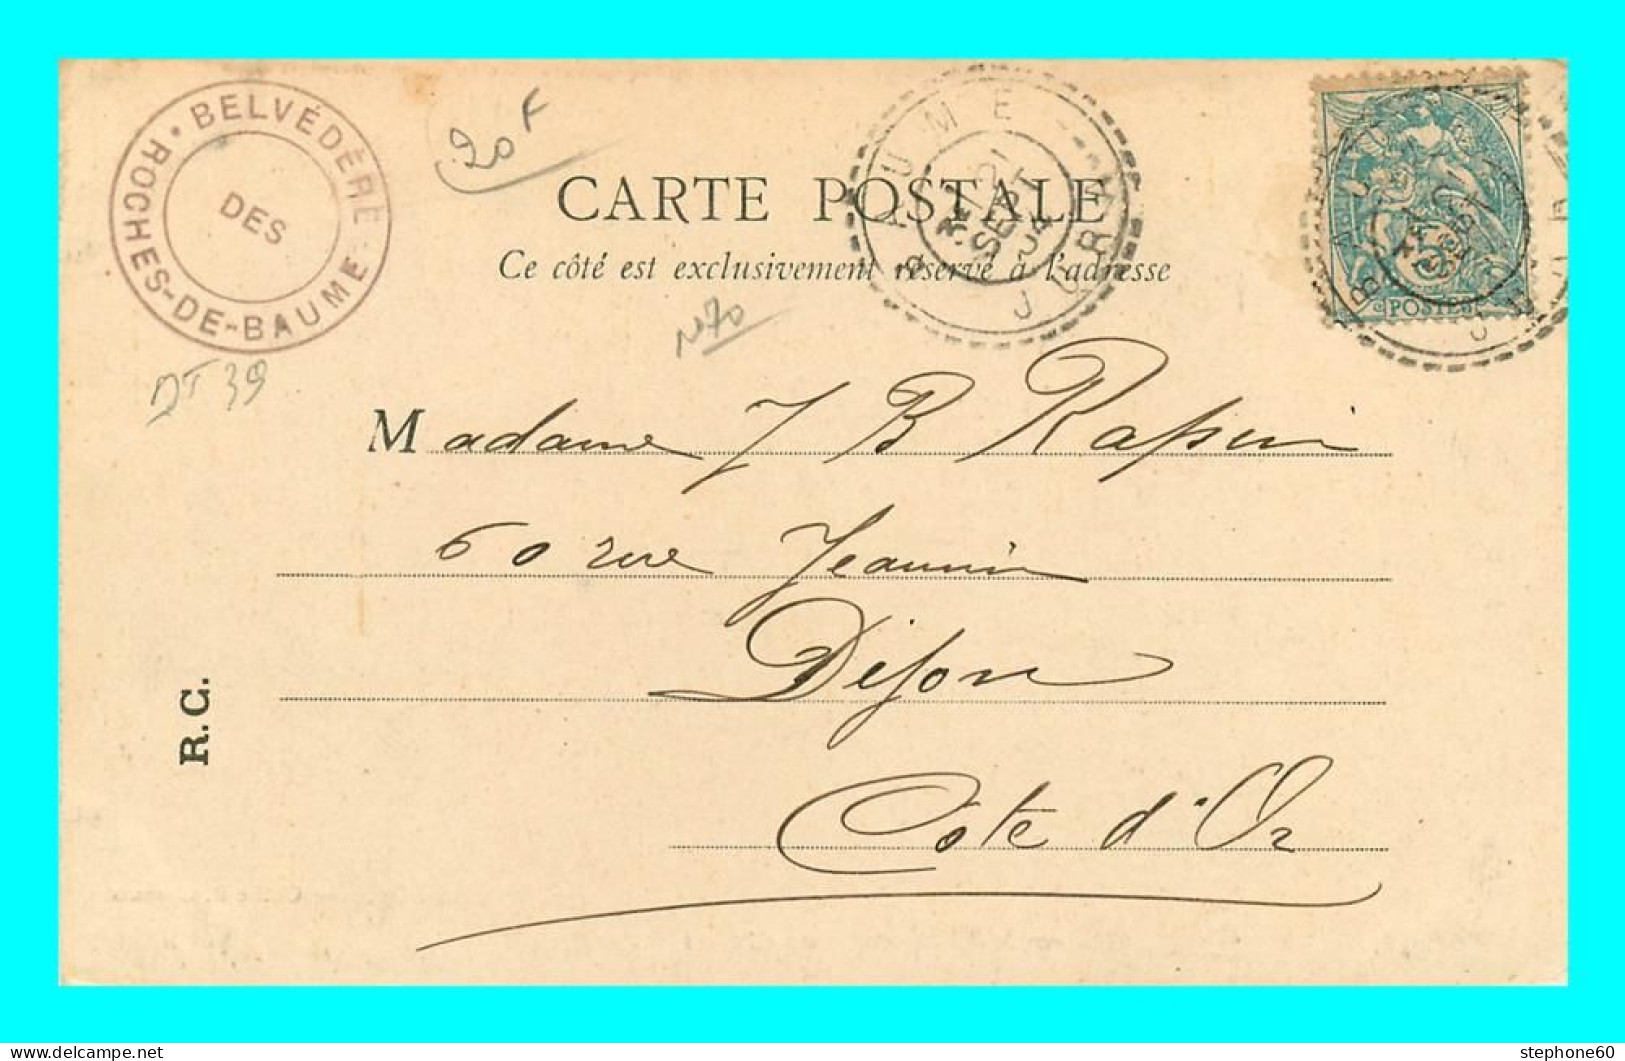 BELVÉDÈRE
DES
ROCHES-DE-BAUME
20F
CARTE POSTALE
Ce côté est exclusivement réservé à l'adresse
BAUME
21
SEPT
04
JURA
BAUME
JURA
POSTES
N70
DT 39
Madame J B Rapin
60 rue Jeannin
Dijon
Côte d'Or
R.C.
delcampe.net
stephone60